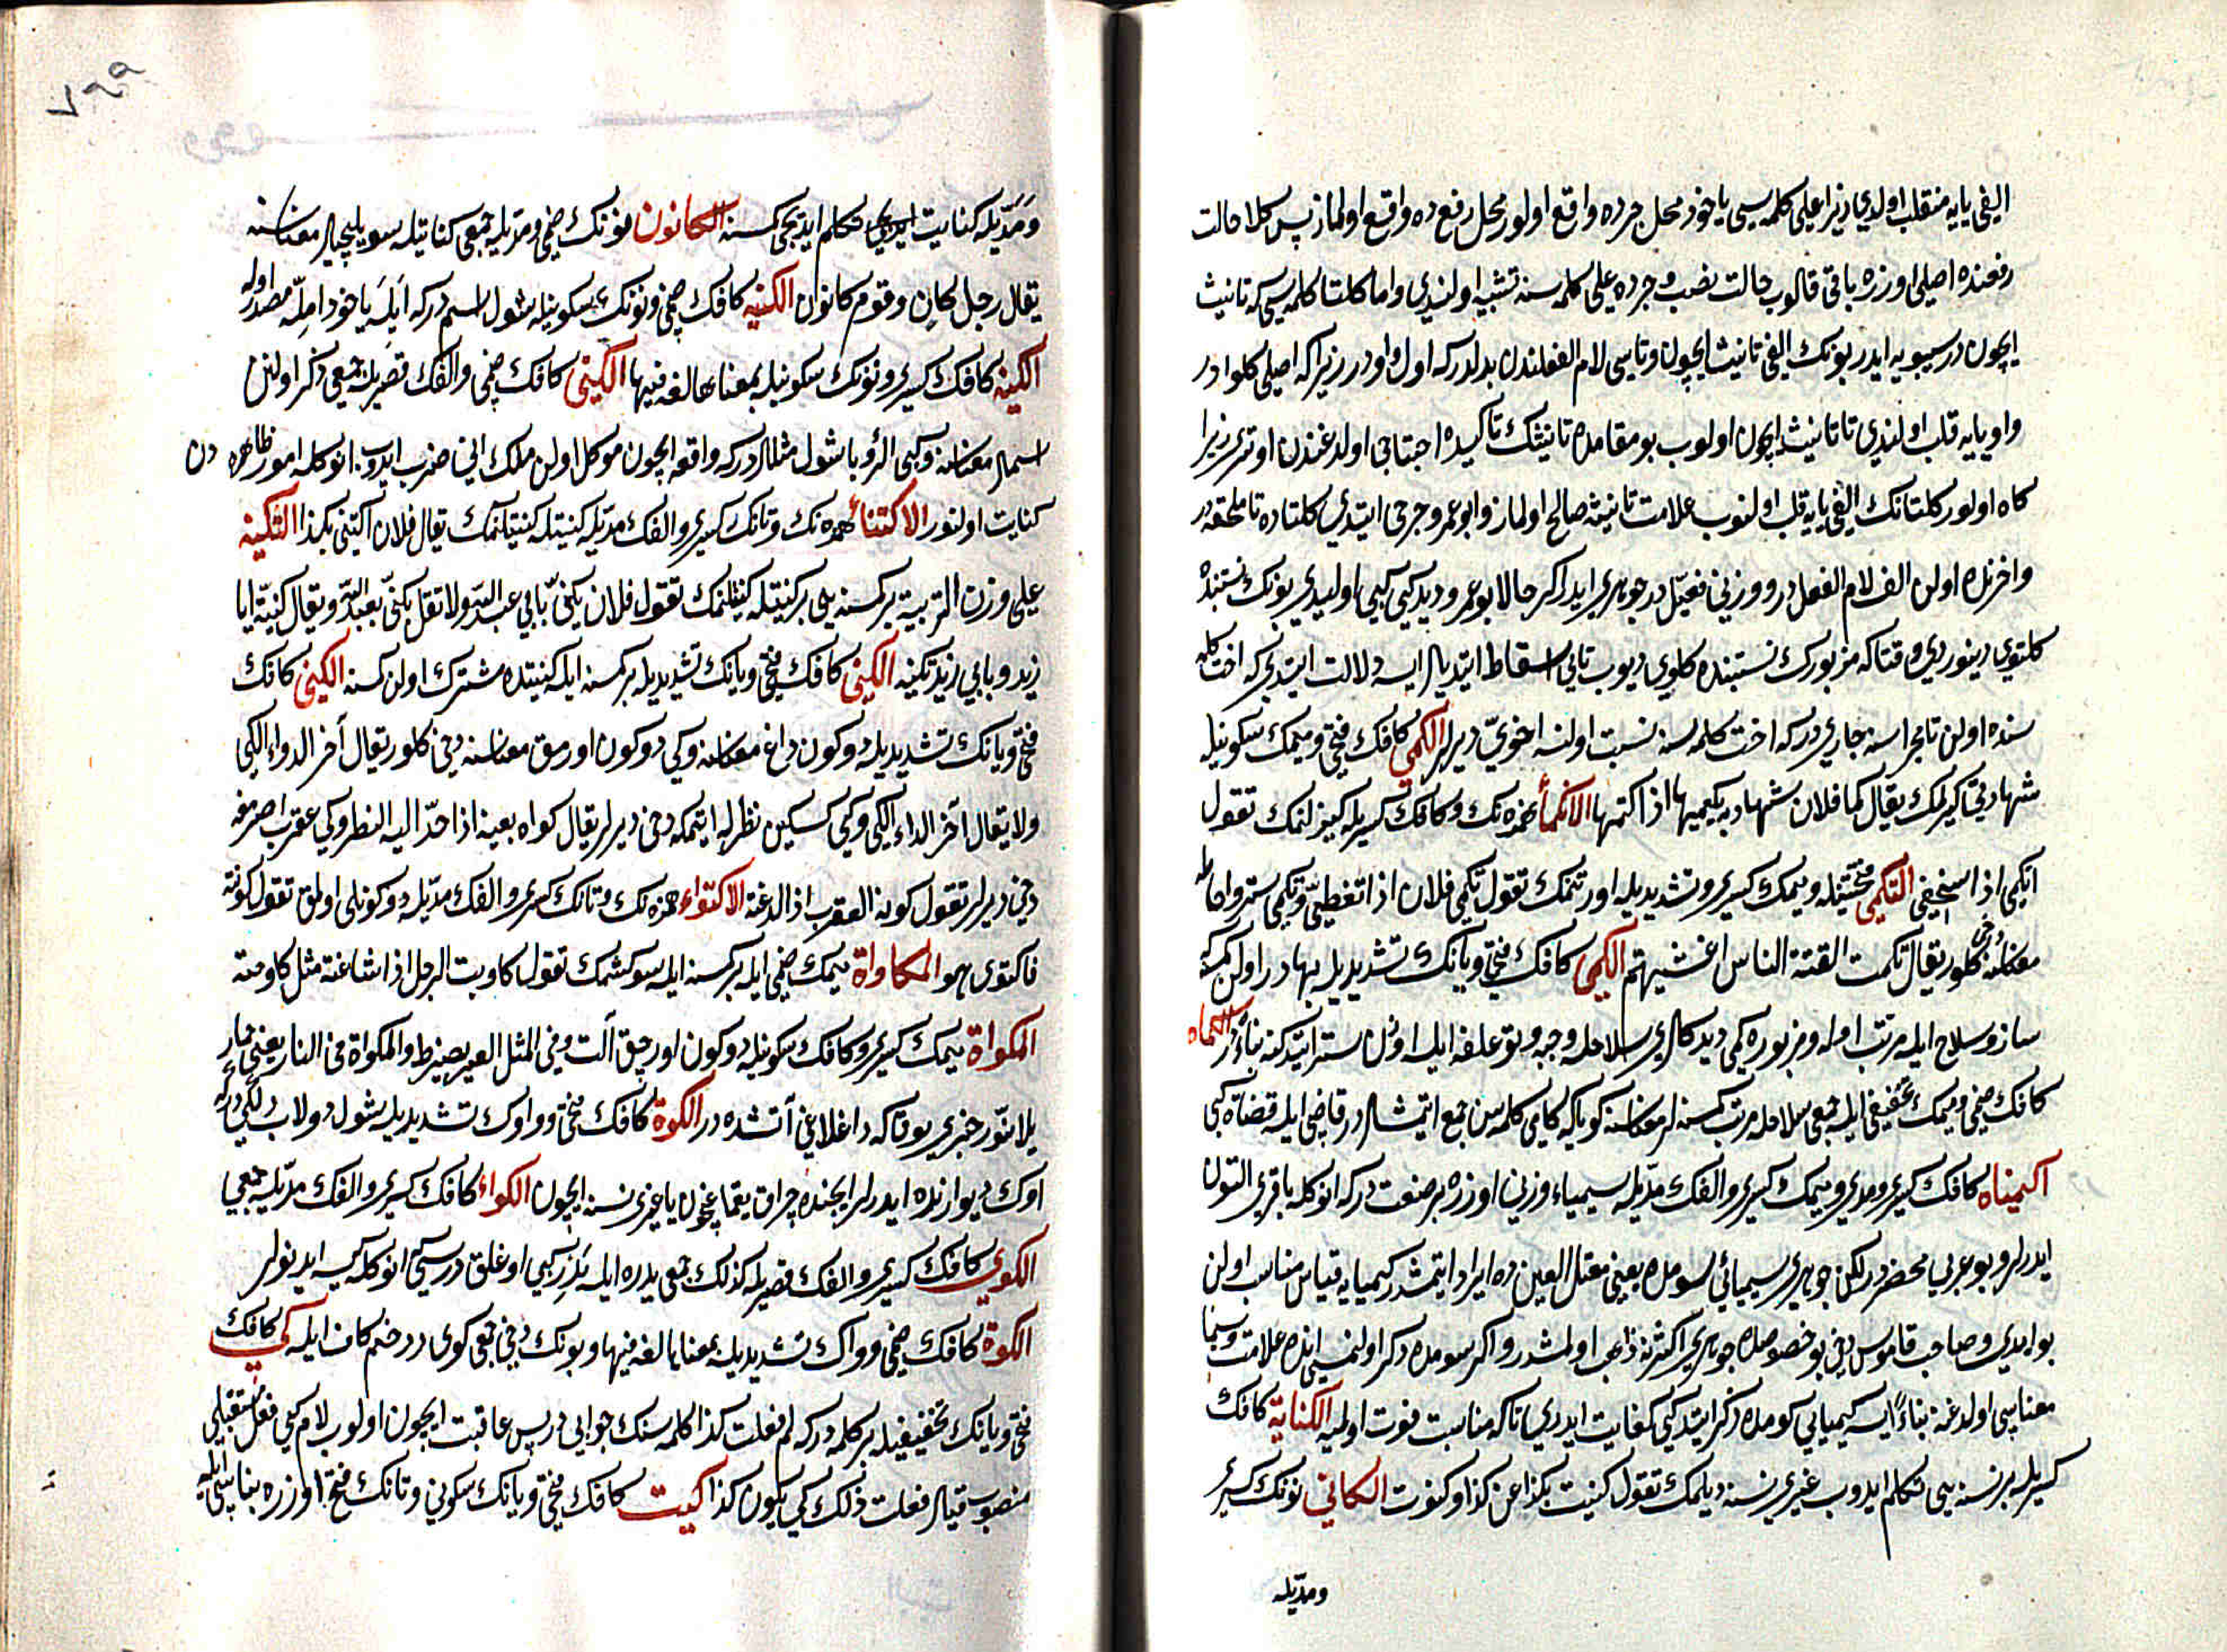 الفی یایه منقلب اولدی زیرا علی کلمه سی یا خود محل جرده واقع اولور محل رفع ده واقع اولماز پس کلا حالت
رفعنده اصلی اوزره باقی قالوب حالت نصب و جرده علی کلمه سنه تشبیه اولندی و اما کلتا کلمه سی که تانیث
ایچون در سیبویه ایدر بونک الفی تانیث ایچون و تاسی لام الفعلندن بدلدر که اول واودر زیرا که اصلی کلوا در
واو یایه قلب اولندی تا تانیث ایچون اولوب بو مقامده تانیثک تاکیده احتیاجی اولدغندن اوتری زیرا
کاه اولور کلتانک الفی یایه قلب اولنوب علامت تانیثه صالح اولماز و ابو عمرو جرمی ایتدی کلتاده تا ملحقه در
واخرنده اولن الف لام الفعل در و وزنی فعتل در جوهری ایدر اکر حال ابو عمرو دیدکی کبی اولیدی بونک نسبتنده
کلتوی دینوردی وقتاکه مزبورک نسبتنده کلوی دیوب تایی اسقاط ایتدیلر ایسه دلالت ایتدی که اخت کلمه
سنده اولن تا مجراسنه جاری در که اخت کلمه سنه نسبت اولنسه اخوی دیرلر الکمی کافک فتحی و میمک سکونیله
شهادتی کیزلمک یقال کما فلان شهادته یکمیها اذا کتمها الانکماء همزه نک و کافک کسریله کیزلنمک تقول
انکمی اذا استخفی التکمی فتحتینله و میمک کسری و تشدیدیله اورتنمک تقول تکمی فلان اذا تغطی و تکمی ستر و احاطه
معناسنه دخی کلور یقال تکمت الفتنة الناس اغشیتهم الکمی کافک فتحی و یانک تشدیدیله بهادر اولن کمسنه
ساز و سلاح ایله مرتب اوله و مزبوره کمی دیدکلری سلاحله وجه و توغلغه ایله اوزن ستر ایتدکنه بناءدر الکماة
کافک ضمی و میمک تخفیفی ایله جمعی سلاحله مرتب کمسنه لر معناسنه کویا که کامی کلمه سن جمع ایتمشلر در قاضی ایله قضاة کبی
اکیمیاء کافک کسری و مدی و میمک کسری و الفک مدیله سیمیاء وزنی اوزره بر صنعت در که انوکله باقری التون
ایدرلر و بو عربی محضدر لکن جوهری سیمیائی سومده یعنی معتل العین ده ایراد ایتمشدر کیمیایه قیاس مناسب اولن
بو ایدی و صاحب قاموس دخی بو خصوصده جوهری اکثرنه ذاهب اولمشدر و اکر سومده ذکر اولنمسی انده علامت و سیما
معناسی اولدغنه بناءً ایسه کیمیایی کومده ذکر ایتدکی کفایت ایدردی تا که مناسبت فوت اولمیه الکنایة کافک
کسریله بر نسنه یی تکلم ایدوب غیری نسنه دیلمک تقول کنیت بکذا عن کذا و کنوت الکانی نونک کسری
ومدیله
ومدیله کنایت ایدیجی تکلم ایدیجی کمسنه الکانون نونک ضمی و مدیله جمعی کنایتله سویلییجیلر معناسنه
یقال رجل کان و قوم کانون الکنیه کافک ضمی و نونک سکونیله شول اسم در که ابله یا خود امله مصدر اوله
الکنیه کافک کسری و نونک سکونیله بمعناها لغه فیها الکنی کافک ضمی و الفک قصریله جمعی ذکر اولنن
اسملر معناسنه و کنی الرؤیا شول مثللر در که واقعه ایچون موکل اولن ملک انی ضرب ایدوب انوکله امور ظاهره دن
کنایت اولنور الاکتناء همزه نک و تانک کسری و الفک مدیله کنیتله کنیتلنمک یقال فلان اکتنی بکذا التکنیه
علی وزن التربیه بر کمسنه یی بر کنیتله کنیتلمک تقول فلان یکنی بابی عبد الله و لا تقل یکنی بعبد الله و یقال کنیته ابا
زید و بابی زید تکنیه الکنی کافک فتحی و یانک تشدیدیله بر کمسنه ایله کنیتده مشترک اولن کمسنه الکی کافک
فتحی و یانک تشدیدیله دوکون داغ معناسنه و کی دوکون اورمق معناسنه دخی کلور یقال آخر الدواء الکی
ولا یقال آخر الداء الکی و کی سکین نظر له ایتمکه دخی دیرلر یقال کواه بعینه اذا احد الیه النظر و کی عقرب اصرمغه
دخی دیرلر تقول کوته العقرب اذا لدغته الاکتواء همزه نک و تانک کسری و الفک مدیله دوکونلی اولمق تقول کویته
فاکتوی هو المکاواة میمک ضمی ایله بر کمسنه ایله سوکشمک تقول کاویت الرجل اذا شاتمته مثل کاوحته
المکواة میمک کسری و کافک سکونیله دوکون اورجق آلت و فی المثل العیر یضرط والمکواة فی النار یعنی حمار
یلا نور خبری یوقتا که داغلاغی آتشده در الکوة کافک فتحی و واوک تشدیدیله شول دولاب دلکی در که
اوک دیوارنده ایدرلر ایچنده چراق یقماغچون یا غیری نسنه ایچون الکواء کافک کسری و الفک مدیله جمعی
الکوی کافک کسری و الفک قصریله کذلک جمعی بدره ایله بدر کبی اوغلق درسی انوکله کیسه ایدنولر
الکوة کافک ضمی و واوک تشدیدیله بمعناها لغه فیها و بونک دخی جمعی کوی در ضم کاف ایله کی کافک
فتحی و یانک تخفیفیله بر کلمه در که لم فعلت کذا کلمه سنک جوابی در پس عاقبت ایچون اولوب لام کبی فعل مستقبلی
منصوب قیلر فعلت ذلک کی یکون کذا کیت کافک فتحی و یانک سکونی و تانک فتح اوزره بناسی ایله